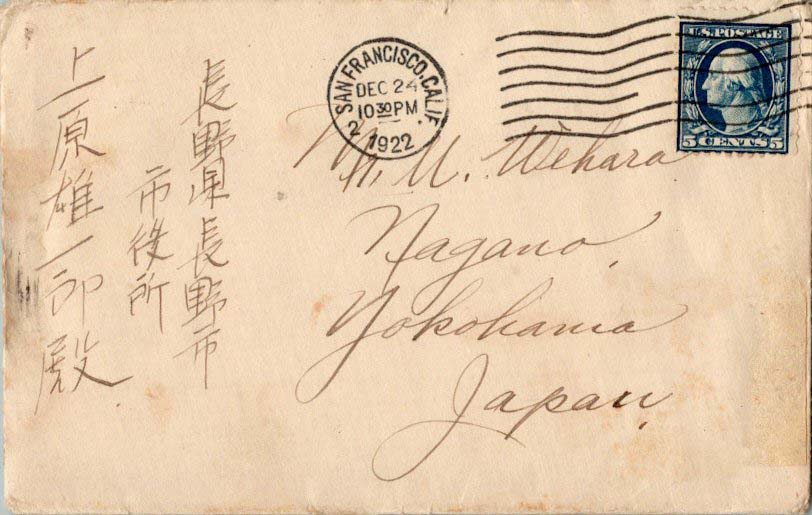 SAN FRANCISCO, CALIF. 2
DEC 24
10 30 PM
1922
U.S. POSTAGE
5 CENTS 5
Mr. U. Wehara
Nagano,
Yokohama
Japan.
長野県長野市
市役所
上原雄一郎殿